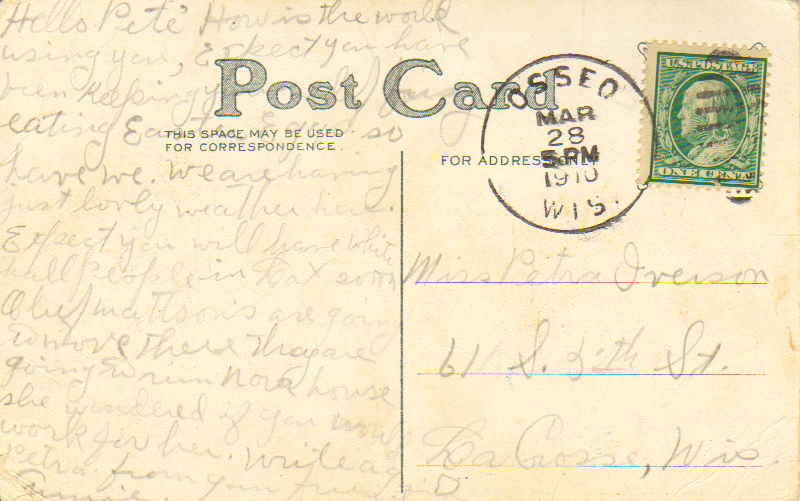 Hello Pete How is the world
using you, Expect you have
been keeping
eating Easter Eggs so
have we. we are having
just lovly weather here.
Expect you will have white
hall People in Lax soon
Mattson's are going
to move there They are
going to run Nora house
she wondered if you
work for her. Write
Petra from your friend
Post Card
THIS SPACE MAY BE USED
FOR CORRESPONDENCE.
FOR ADDRESS ONLY
OSSEO
MAR
28
5 PM
1910
WIS.
U.S. POSTAGE
ONE CENT
Miss Petra Iverson
61 S. 5th St.
La Crosse, Wis.